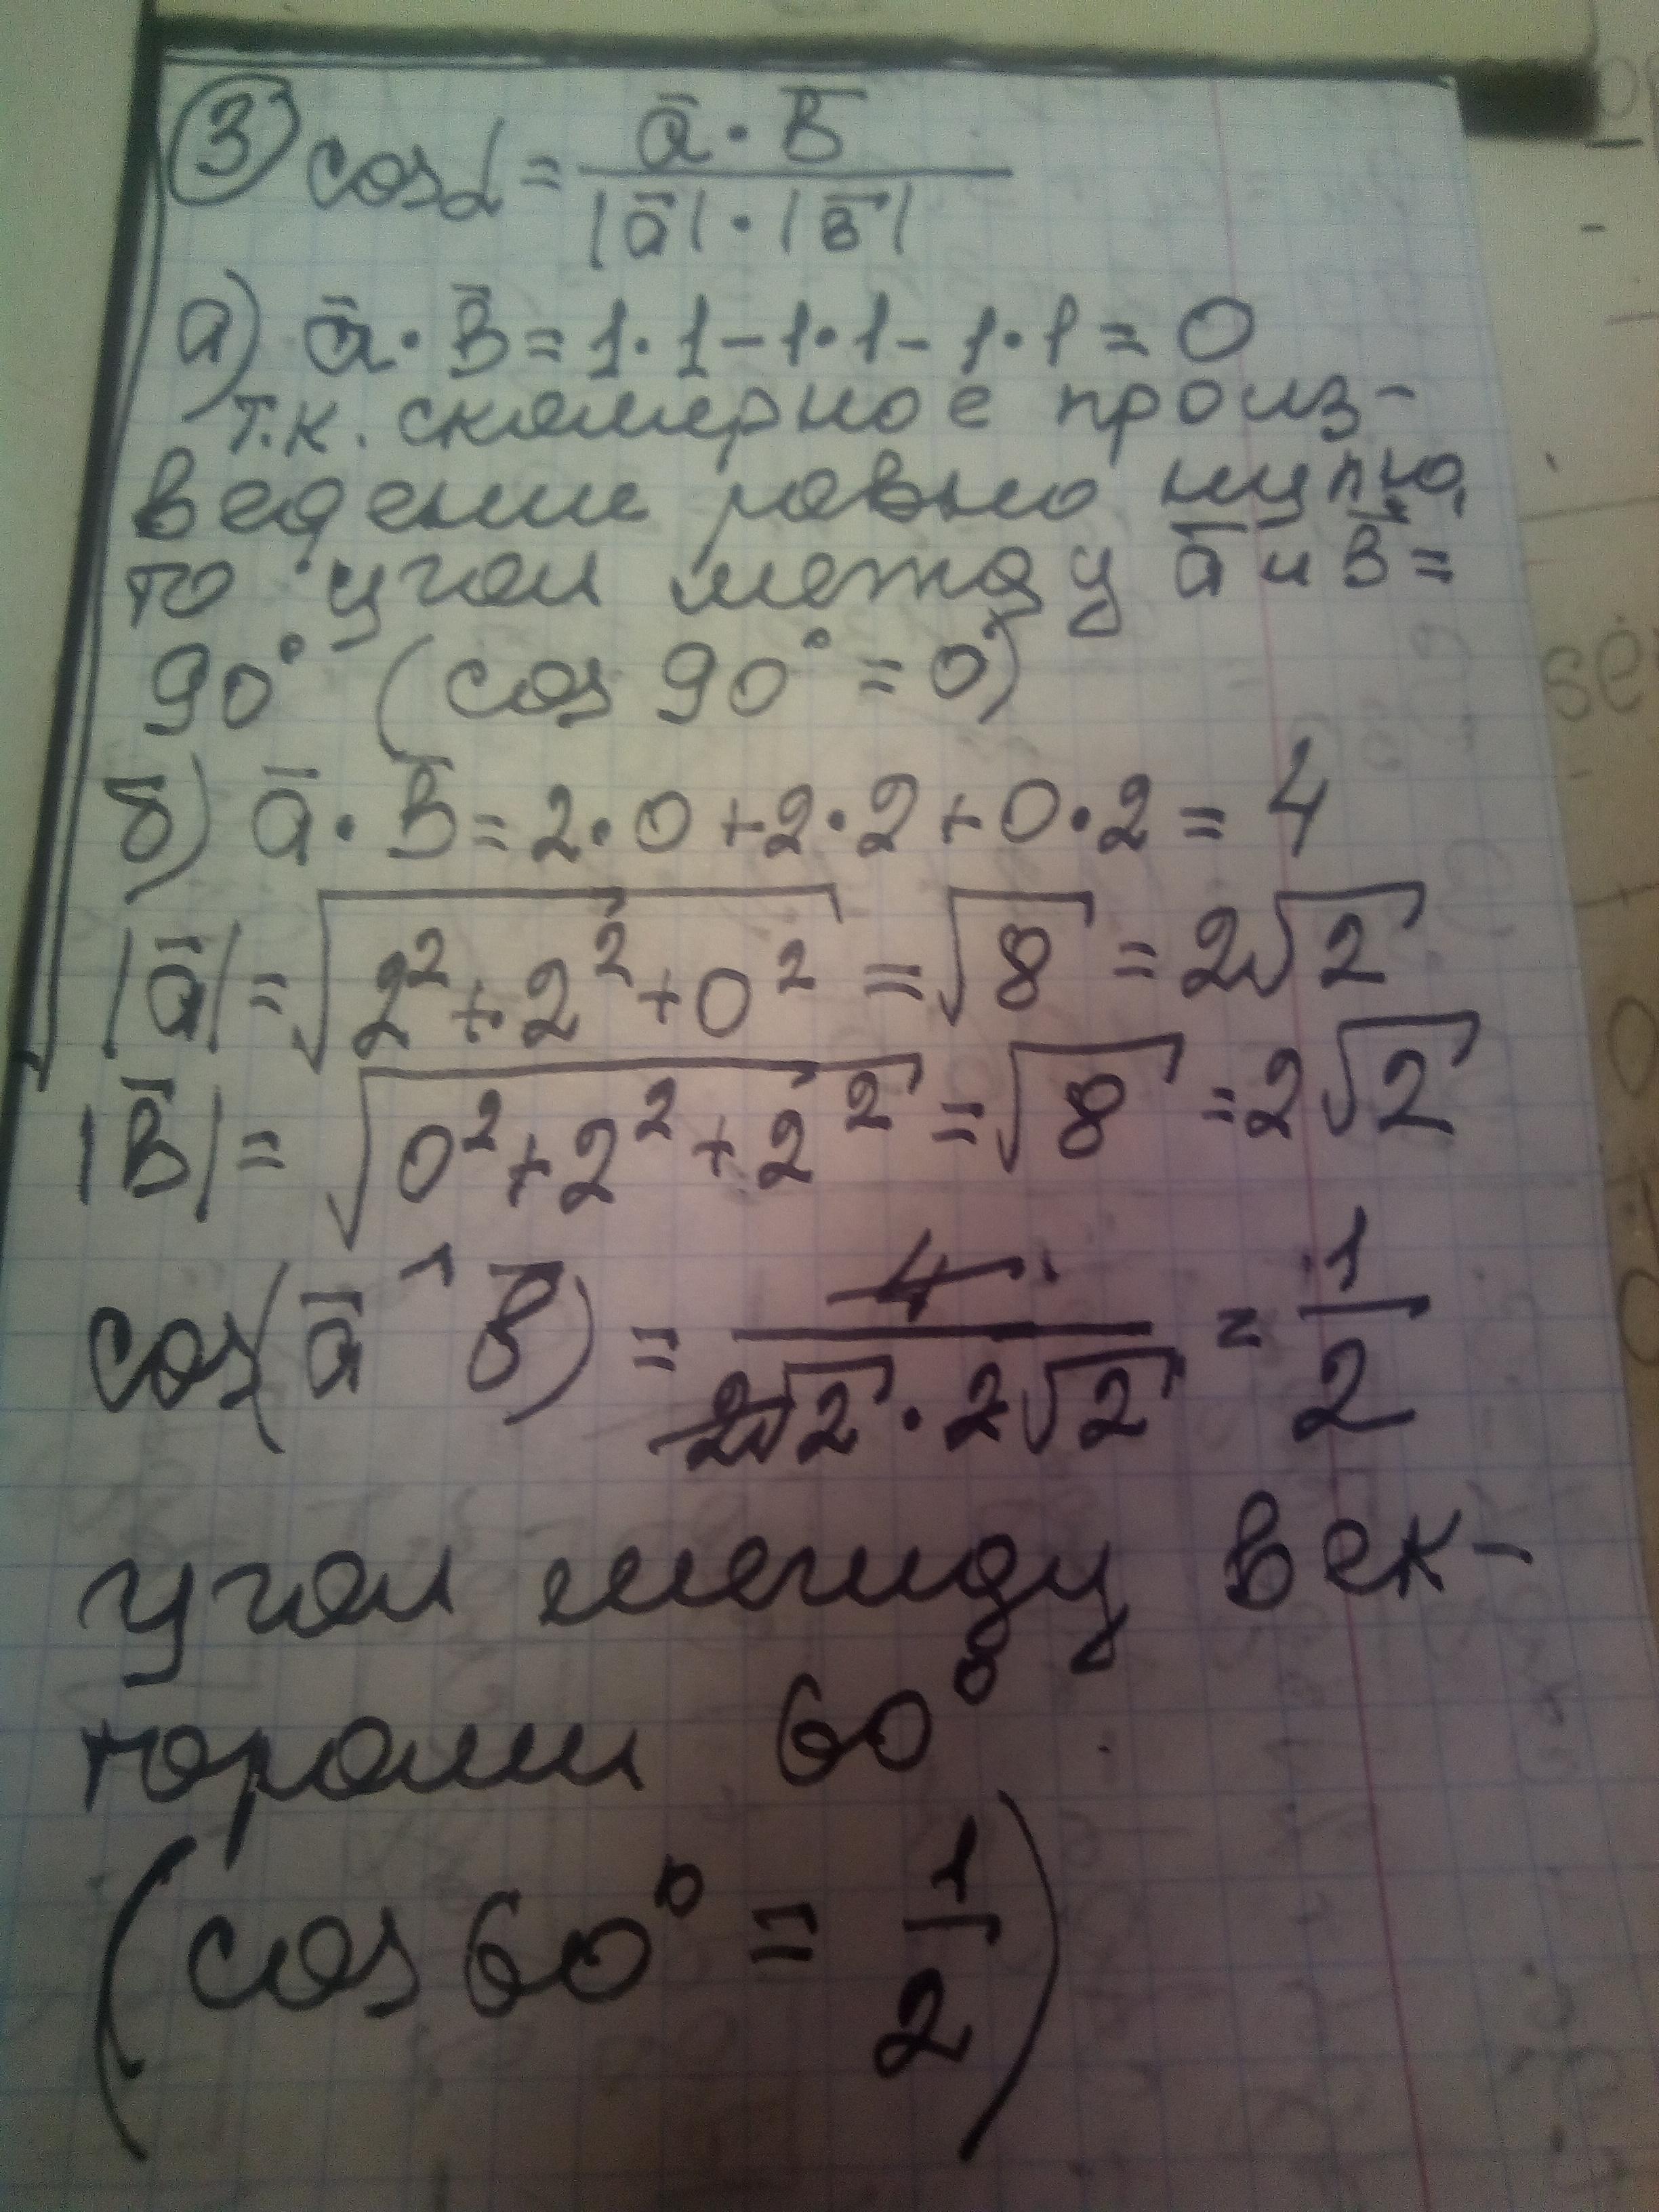 ③ cosα = (ā · B̄) / (|ā| · |в̄|)
а) ā · B̄ = 1·1 − 1·1 − 1·1 = 0
т.к. скалярное произ-
ведение равно нулю,
то угол между ā и B̄ =
90° (cos 90° = 0)
б) ā · B̄ = 2·0 + 2·2 + 0·2 = 4
|ā| = √(2² + 2² + 0²) = √8 = 2√2
|B̄| = √(0² + 2² + 2²) = √8 = 2√2
cos(ā ^ B̄) = 4 / (2√2 · 2√2) = 1/2
угол между век-
торами 60°
(cos 60° = 1/2)